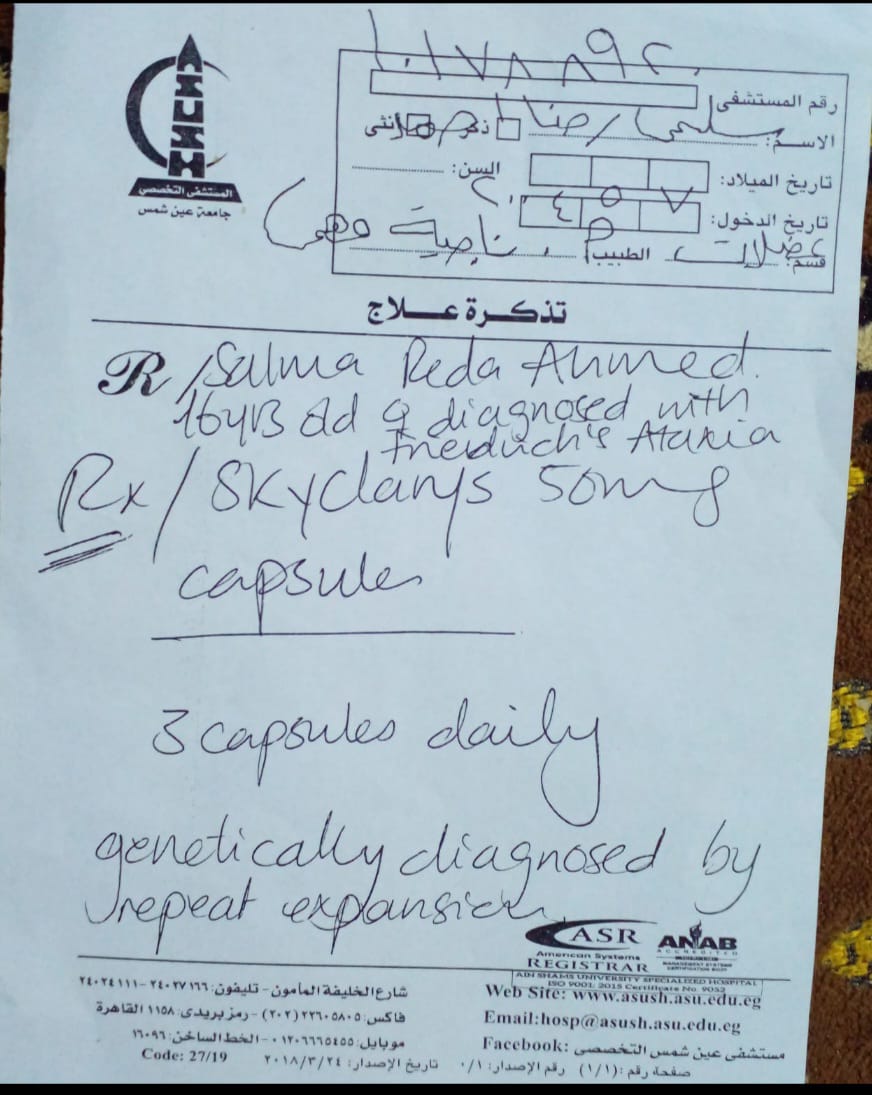 ASUSH
المستشفى التخصصي
جامعة عين شمس
رقم المستشفى
الاسم: سلمى رضا ذكر أنثى
تاريخ الميلاد: السن:
تاريخ الدخول: ٧ ٥ ٢٠٢٤
قسم: عضلات الطبيب: ناجية فهمى
تذكرة علاج
R/Salma Reda Ahmed.
16 yrs old ♀ diagnosed with
Friedrich's Ataxia
Rx/ Skyclarys 50mg
capsules
3 capsules daily
genetically diagnosed by
repeat expansion
ASR
American Systems
REGISTRAR
ANAB
ACCREDITED
MANAGEMENT SYSTEMS
CERTIFICATION BODY
AIN SHAMS UNIVERSITY SPECIALIZED HOSPITAL
ISO 9001: 2015 Certificate No. 9052
شارع الخليفة المأمون - تليفون: ٢٤٠٢٧١٦٦ - ٢٤٠٢٤١١١
Web Site: www.asush.asu.edu.eg
فاكس: ٢٢٦٠٥٨٠٥ (٢٠٢) - رمز بريدى: ١١٥٨ القاهرة
Email:hosp@asush.asu.edu.eg
موبايل: ٠١٢٠٦٦٦٥٤٥٥ - الخط الساخن: ١٦٠٩٦
Facebook: مستشفى عين شمس التخصصى
Code: 27/19
تاريخ الإصدار: ٢٠١٨/٣/٢٤
رقم الإصدار: ٠/١
صفحة رقم: (١/١)